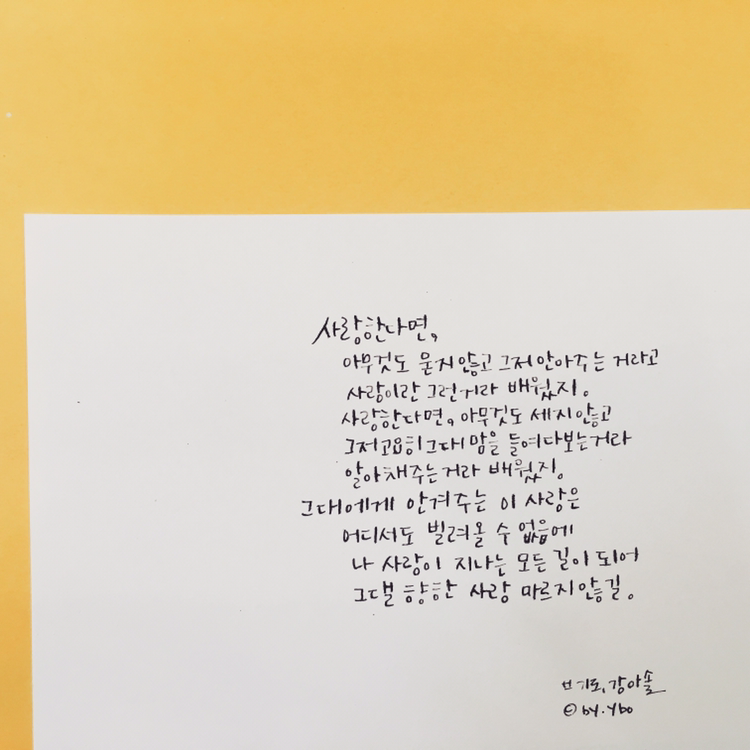 사랑한다면,
아무것도 묻지않고 그저 안아주는 거라고
사랑이란 그런거라 배웠지.
사랑한다면, 아무것도 세지않고
그저 고요히 그대 맘을 들여다보는거라
알아채주는거라 배웠지.
그대에게 안겨주는 이 사랑은
어디서도 빌려올 수 없음에
나 사랑이 지나는 모든 길이 되어
그댈 향한 사랑 마르지않길.
기도, 강아솔
© by. ybo